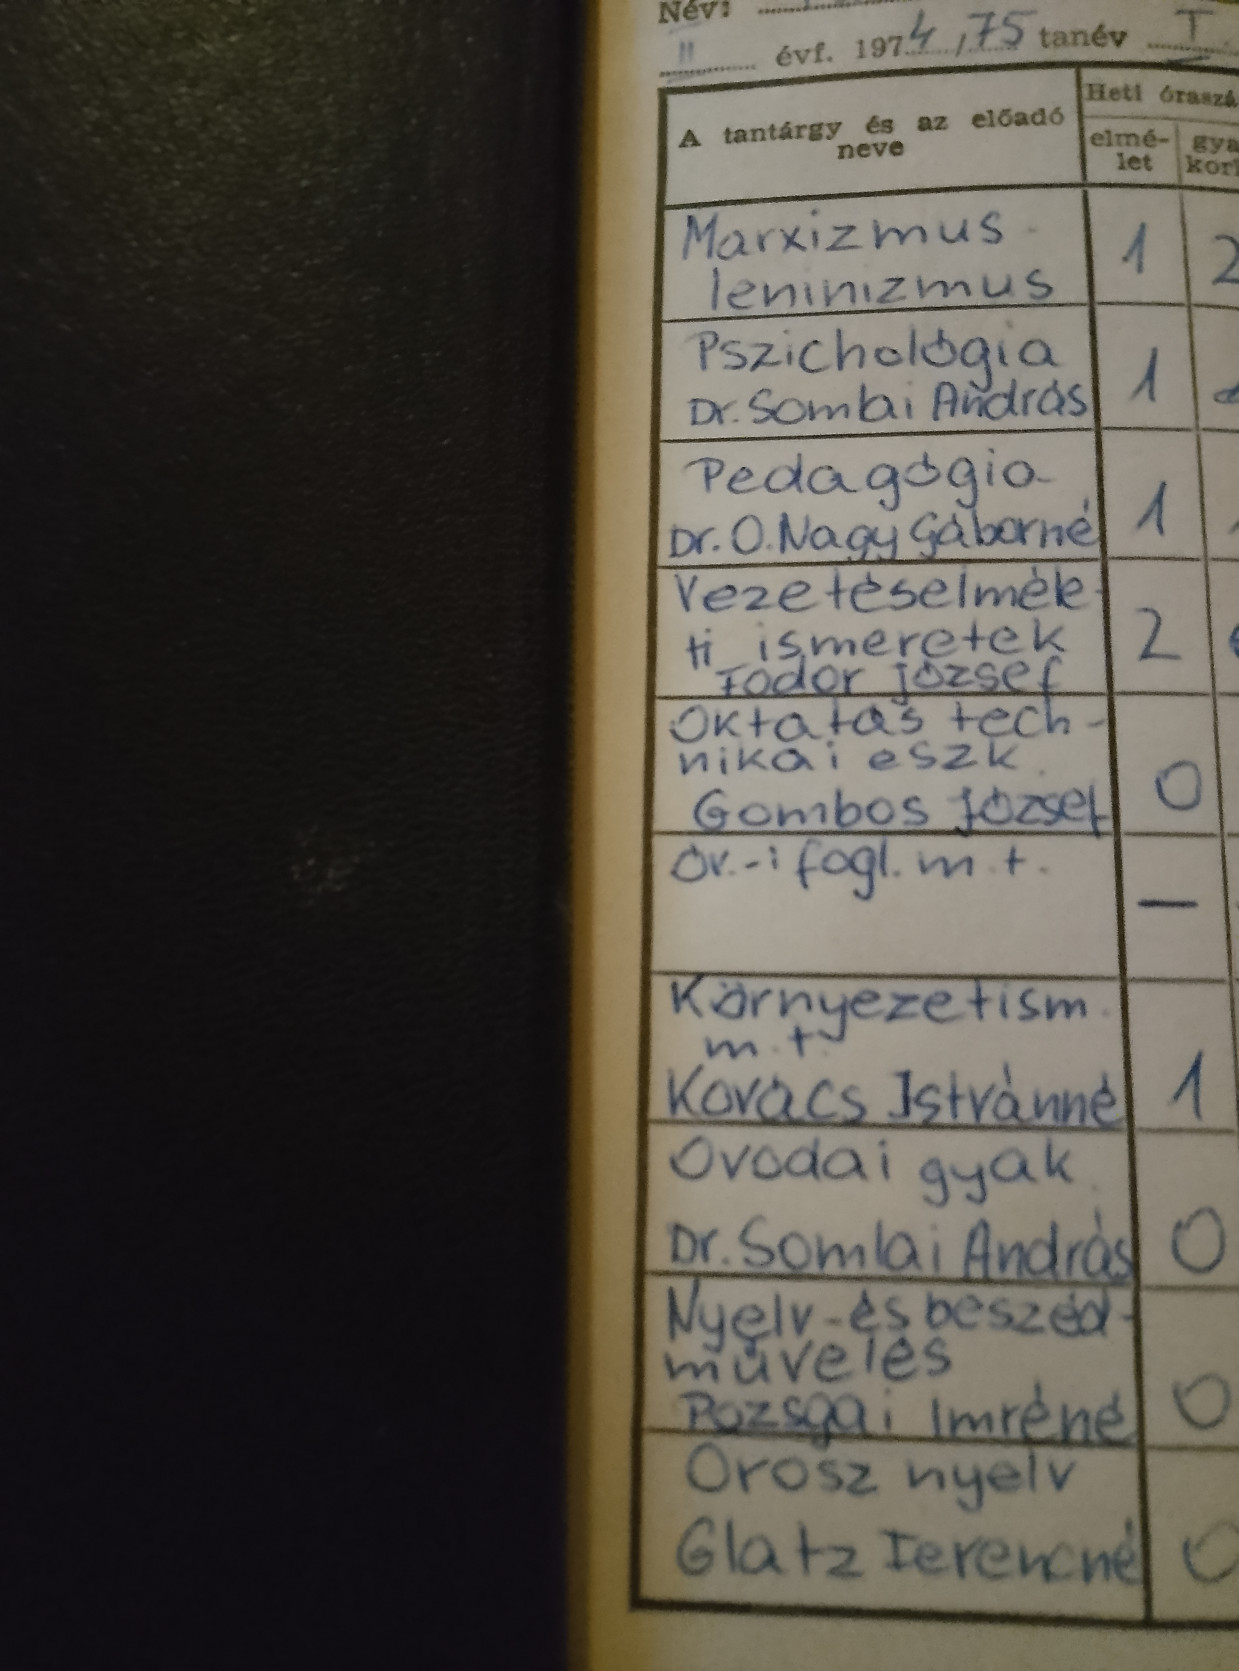 Név:
II évf. 1974/75 tanév I.
A tantárgy és az előadó
neve
Heti óraszá
elmé-
let
gya
korl
Marxizmus
leninizmus
1 2
Pszichológia
Dr. Somlai András
1
Pedagógia
Dr. O. Nagy Gáborné
1
Vezetéselméle-
ti ismeretek
Fodor József
2
Oktatás tech-
nikai eszk.
Gombos József
0
Óv.-i fogl. m.t.
—
Környezetism.
m.t.
Kovács Istvánné
1
Óvodai gyak.
Dr. Somlai András
0
Nyelv-és beszéd-
művelés
Pozsgai Imréné
0
Orosz nyelv
Glatz Ferencné
0